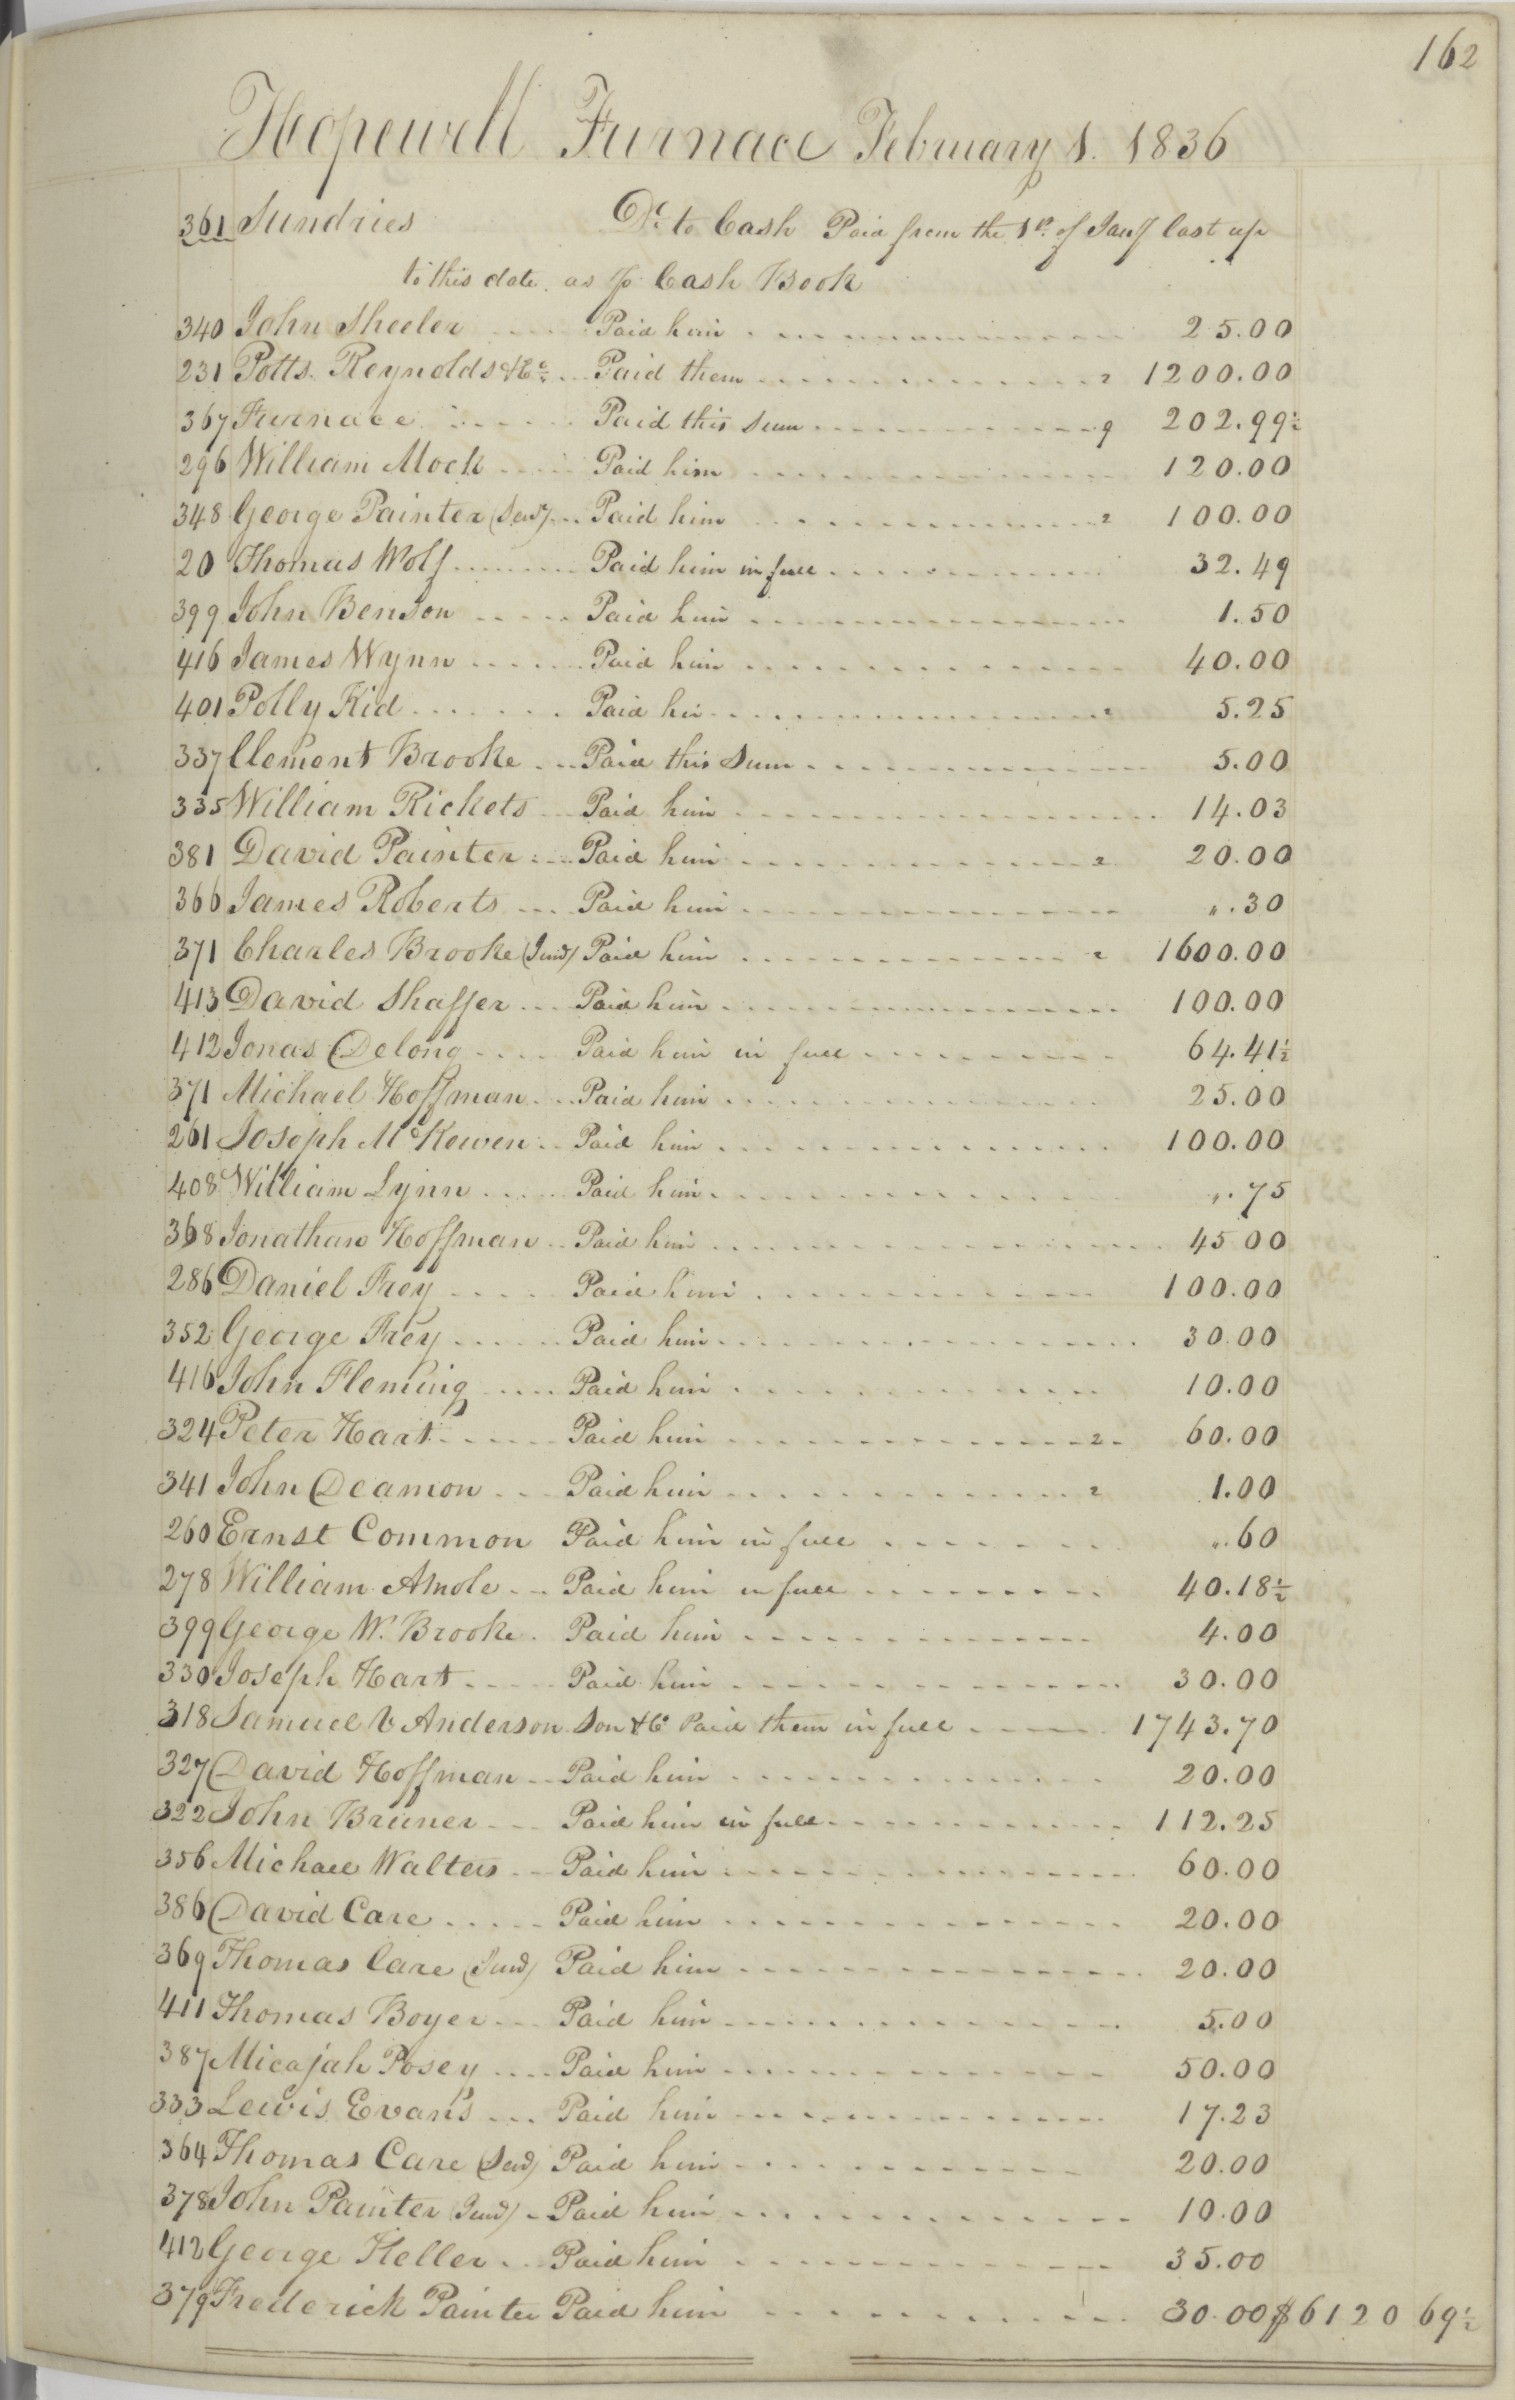 162
Hopewell Furnace February 1. 1836
361 Sundries Dr. to Cash Paid from the 1st. of Jany last up
to this date. as p Cash Book
340 John Sheeler Paid him 25.00
231 Potts. Reynolds & Co. Paid them 2 1200.00
367 Furnace Paid this sum 9 202.99½
296 William Mock Paid him 120.00
348 George Painter (Senr) Paid him 2 100.00
20 Thomas Wolf Paid him in full 32.49
399 John Benson Paid him 1.50
416 James Wynn Paid him 40.00
401 Polly Kid Paid her 2 5.25
337 Clement Brooke Paid this Sum 5.00
335 William Rickets Paid him 14.03
381 David Painter Paid him 2 20.00
366 James Roberts Paid him ".30
371 Charles Brooke (Junr) Paid him 2 1600.00
413 David Shaffer Paid him 100.00
412 Jonas Delong Paid him in full 64.41½
371 Michael Hoffman Paid him 25.00
261 Joseph McKewen Paid him 100.00
408 William Lynn Paid him ".75
368 Jonathan Hoffman Paid him 45 00
286 Daniel Frey Paid him 100.00
352 George Frey Paid him 30.00
416 John Fleming Paid him 10.00
324 Peter Hart Paid him 2 60.00
341 John Deamon Paid him 2 1.00
260 Ernst Common Paid him in full ".60
278 William Amole Paid him in full 40.18½
399 George W. Brooke Paid him 4.00
330 Joseph Hart Paid him 30.00
318 Samuel V Anderson Son & Co Paid them in full 1743.70
327 David Hoffman Paid him 20.00
322 John Bruner Paid him in full 112.25
356 Michael Walters Paid him 60.00
386 David Care Paid him 20.00
369 Thomas Care (Junr) Paid him 20.00
411 Thomas Boyer Paid him 5.00
387 Micajah Posey Paid him 50.00
333 Lewis Evans Paid him 17.23
364 Thomas Care (Senr) Paid him 20.00
378 John Painter (Junr) Paid him 10.00
412 George Keller Paid him 35.00
379 Frederick Painter Paid him 30.00 $6120 69½